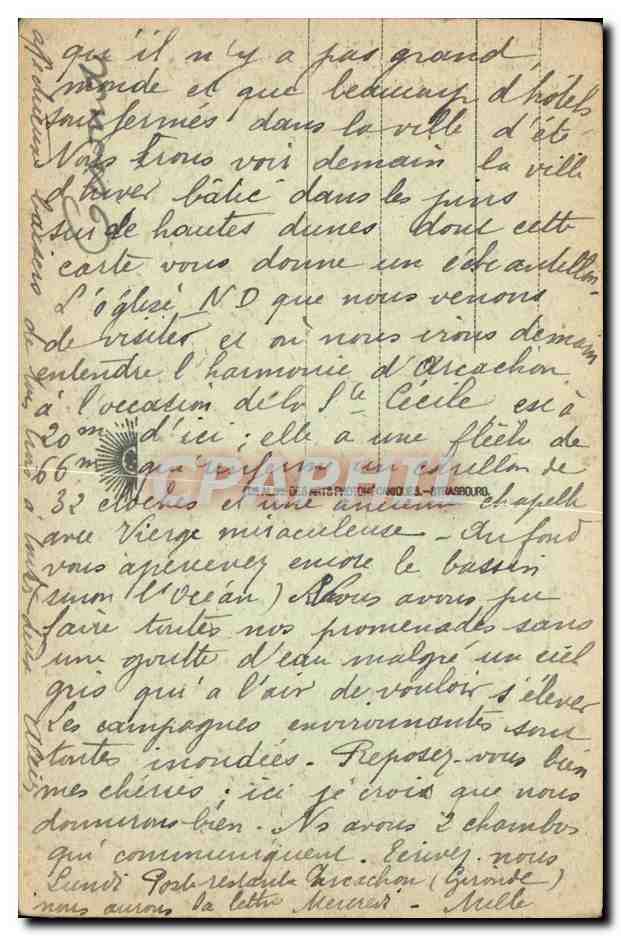 qu'il n'y a pas grand
monde et que beaucoup d'hôtels
sont fermés dans la ville d'été
Nous irons voir demain la ville
d'hiver bâtie dans les pins
sur de hautes dunes dont cette
carte vous donne un échantillon
L'église ND que nous venons
de visiter et où nous irons demain
entendre l'harmonie d'Arcachon
à l'occasion de la Ste Cécile est à
20m d'ici ; elle a une flèche de
66m qui renferme un carillon de
32 cloches et une ancienne chapelle
avec Vierge miraculeuse - Au fond
vous apercevez encore le bassin
sinon l'Océan) Nous avons pu
faire toutes nos promenades sans
une goutte d'eau malgré un ciel
gris qui a l'air de vouloir s'élever
Les campagnes environnantes sont
toutes inondées. Reposez-vous bien
mes chéries ; ici je crois que nous
dormirons bien. Ns avons 2 chambres
qui communiquent. Ecrivez-nous
Lundi Poste restante Arcachon (Gironde)
nous aurons la lettre Mercredi -
affectueux baisers de nous tous à toutes deux
CPAPHIL
DES ARTS PHOTOMECANIQUES.-STRASBOURG.